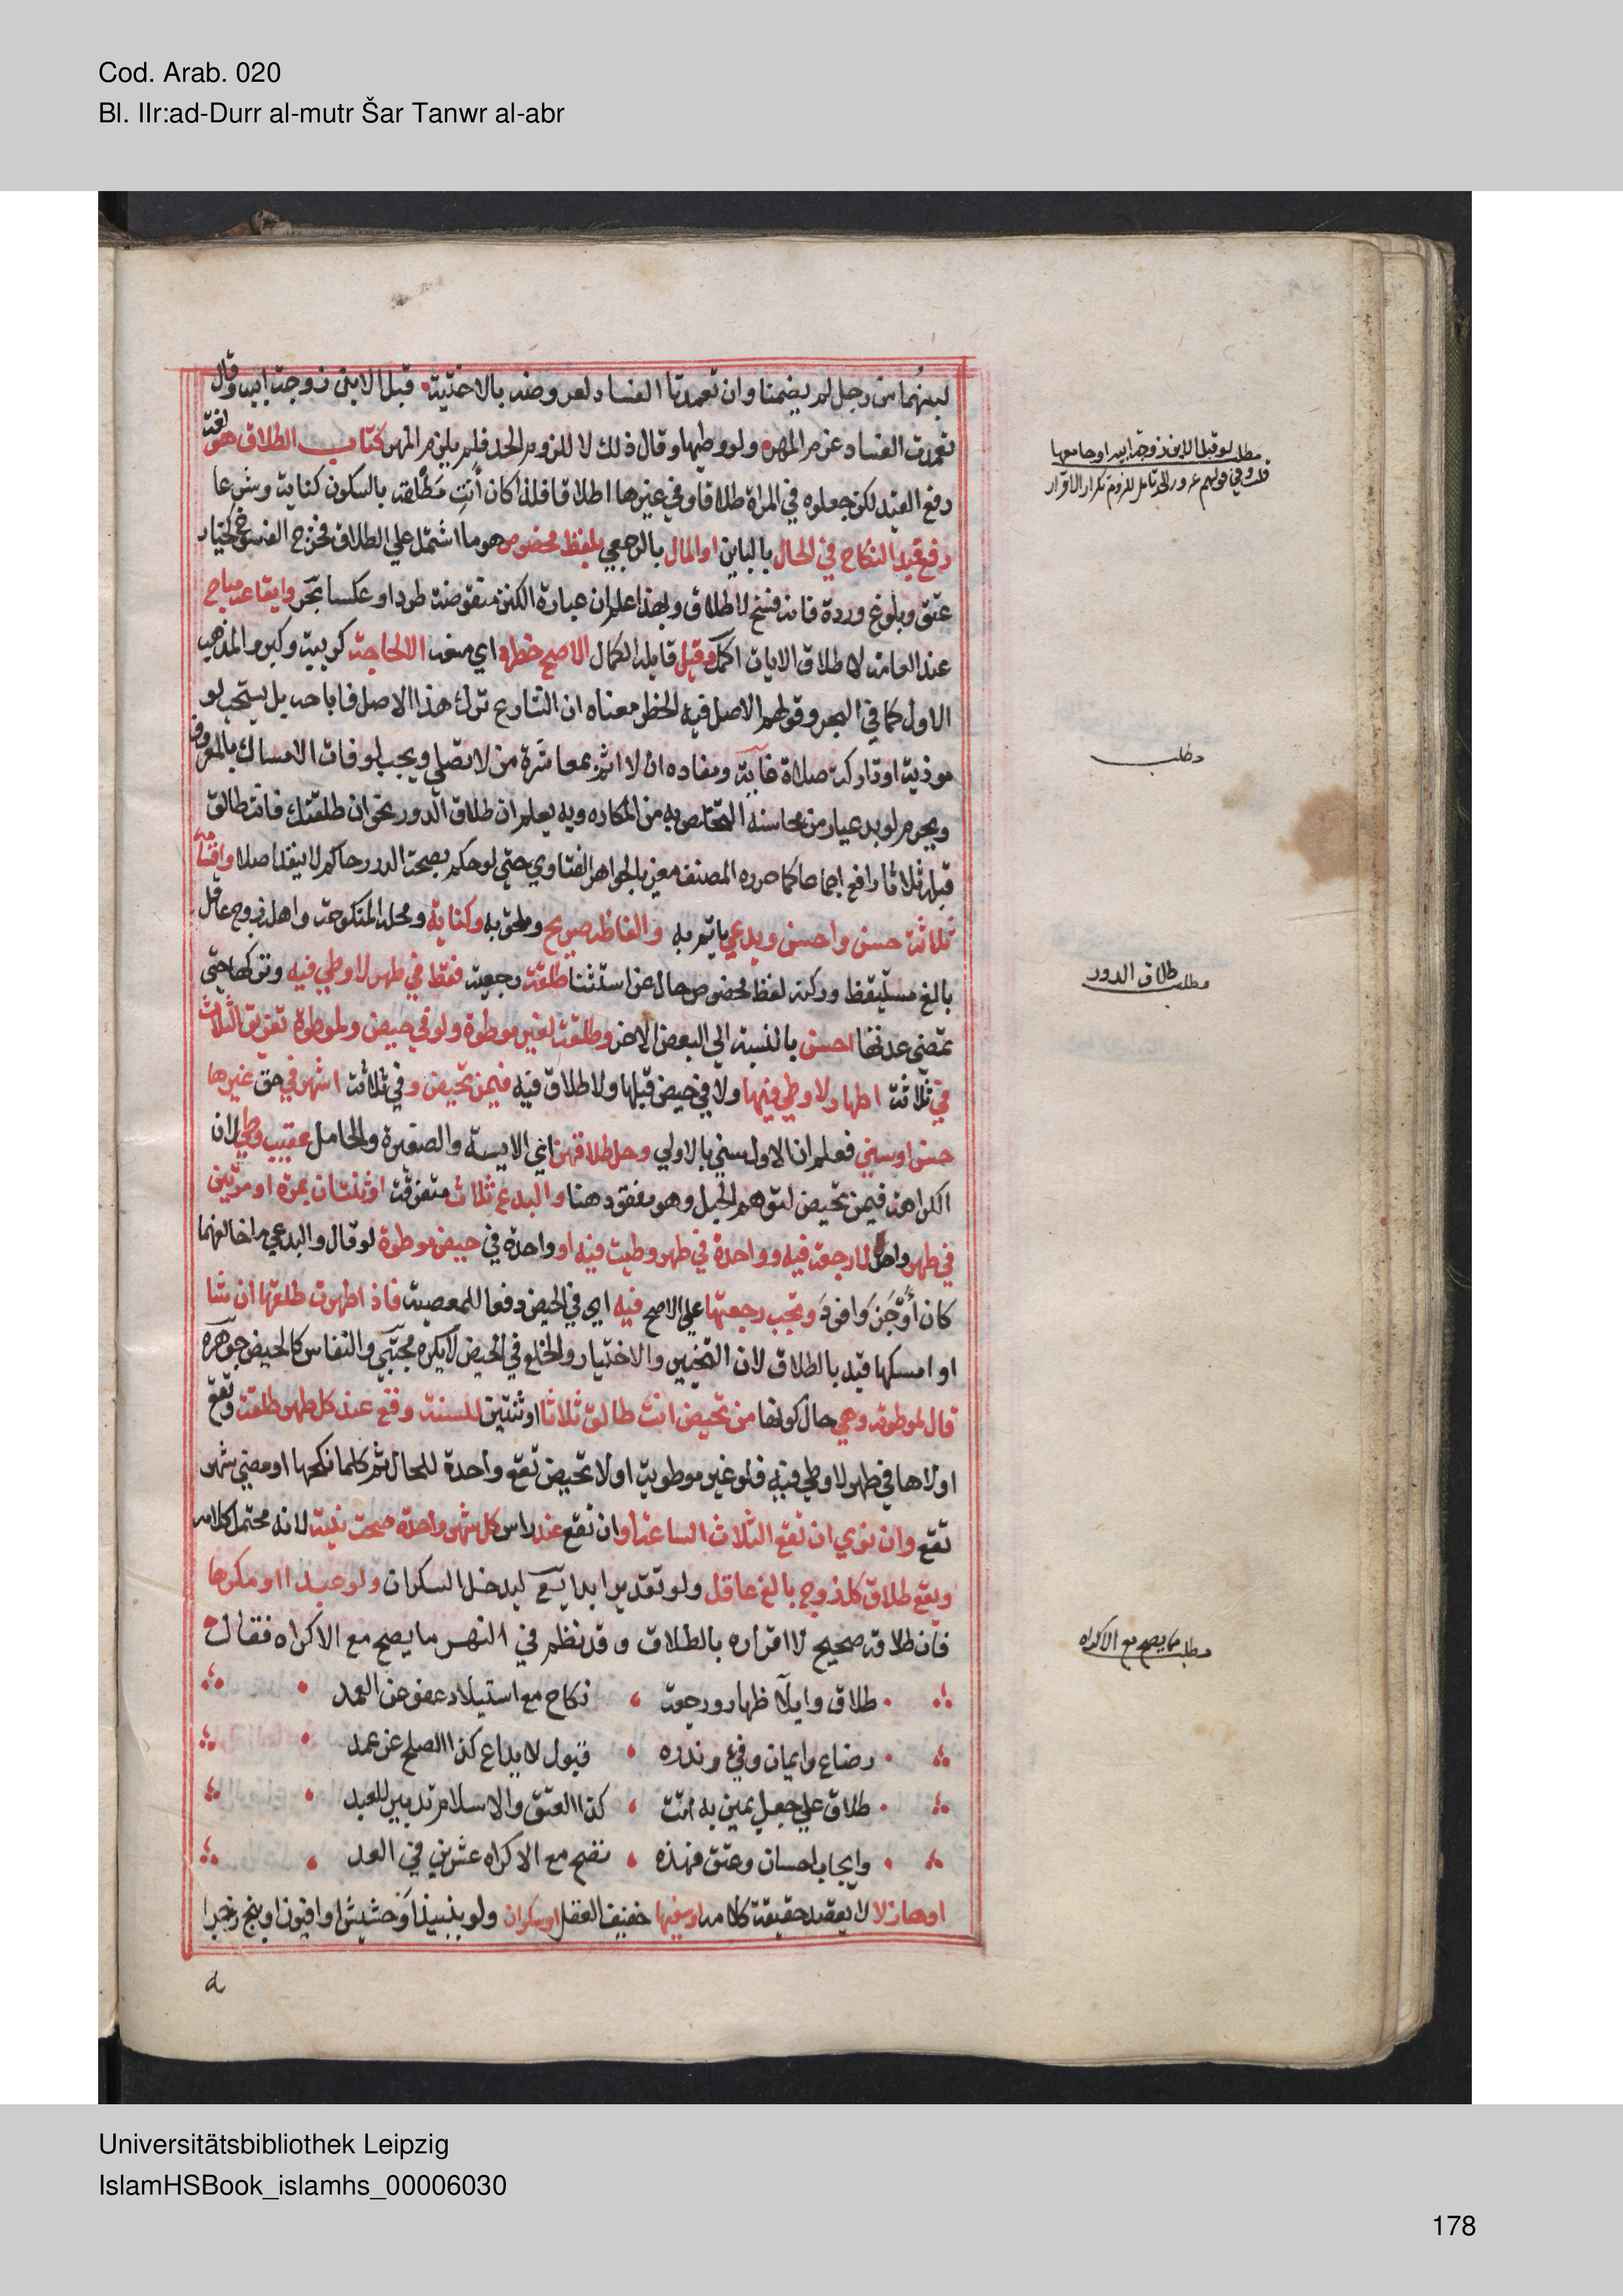 Cod. Arab. 020
Bl. IIr:ad-Durr al-mutr Šar Tanwr al-abr
لبنهما من رجل لم يضمنا وان تعمدتا الفساد لعروضه بالاختية قبل الابن زوجة ابيه وقال
تعمدت الفساد غرم المهر ولو وطيها وقال ذلك لا للزوم الحد فلم يلزم المهر كتاب الطلاق هو لغة
رفع القيد لكن جعلوه في المراة طلاقا وفي غيرها اطلاقا فلذا كان انتِ مطْلقة بالسكون كناية وشرعا
رفع قيد النكاح في الحال بالباين او المال بالرجعي بلفظ مخصوص هو ما اشتمل على الطلاق فخرج الفسوخ كخيار
عتق وبلوغ وردة فانه فسخ لا طلاق وبهذا علم ان عبارة الكنز منقوضة طردا وعكسا بحر وايقاعه مباح
عند العامة لاطلاق الايات اكمل وقيل قايله الكمال الاصح حظره اي منعه الا لحاجة كريبة وكبر والمذهب
الاول كما في البحر وقولهم الاصل فيه الحظر معناه ان الشارع ترك هذا الاصل فاباحه بل يستحب لو
موذية او تاركة صلاة غاية ومفاده ان لا اثم بمعاشرة من لا تصلي ويجب لو فات الامساك بالمعروف
ويحرم لو بدعيا ومن محاسنه التخلص به من المكاره وبه يعلم ان طلاق الدور نحو ان طلقتك فانت طالق
قبله ثلاثا واقع اجماعا كما حرره المصنف معزيا لجواهر الفتاوي حتى لو حكم بصحة الدور حاكم لا ينفذ اصلا واقسامه
ثلاثة حسن واحسن وبدعي ياثم به والفاظه صريح وملحق به وكناية ومحله المنكوحة واهله زوج عاقل
بالغ مستيقظ وركنه لفظ مخصوص خال عن استثنا طلقة رجعية فقط في طهر لا وطي فيه وتركها حتى
تمضي عدتها احسن بالنسبة الى البعض الاخر وطلقة لغير موطوة ولو في حيض ولموطوة تفريق الثلاث
في ثلاثة اطهار لا وطي فيها ولا في حيض قبلها ولا طلاق فيه فيمن تحيض وفي ثلاثة اشهر في حق غيرها
حسن وسني فعلم ان الاول سني بالاولي وحل طلاقهن اي الايسة والصغيرة والحامل عقيب وطي لان
الكراهة فيمن تحيض لتوهم الحبل وهو مفقود هنا والبدعي ثلاث متفرقة او ثنتان بمرة او مرتين
في طهر واحد لا رجعة فيه وواحدة في طهر وطيت فيه او واحدة في حيض موطوة لو قال والبدعي ما خالفهما
كان اوجز وافود وتجب رجعتها على الاصح فيه اي في الحيض دفعا للمعصية فاذا طهرت طلقها ان شا
او امسكها قيد بالطلاق لان التخيير والاختيار والخلع في الحيض لا يكره مجتبي والنفاس كالحيض جوهرة
قال لموطوته وهي حال كونها من تحيض انت طالق ثلاثا او ثنتين للسنة وقع عند كل طهر طلقة وتقع
اولاها في طهر لا وطي فيه فلو غير موطوية او لا تحيض تقع واحدة للحال ثم كلما نكحها او مضى شهر
تقع وان نوي ان تقع الثلاث الساعة او ان تقع عند راس كل شهر واحدة صحت نيته لانه محتمل كلامه
ويقع طلاق كل زوج بالغ عاقل ولو تقديرا بدايع ليدخل السكران ولو عبدا او مكرها
فان طلاقه صحيح لا اقراره بالطلاق وقد نظم في النهر ما يصح مع الاكراه فقال
طلاق وايلا ظهار ورجعة نكاح مع استيلاد عفو عن العمد
رضاع وايمان وفيء ونذره قبول لايداع كذا الصلح عن عمد
طلاق على جعل يمين به اتت كذا العتق والاسلام تدبير للعبد
وايجاب احسان وعتق فهذه تصح مع الاكراه عشرين في العد
او هازلا لا يقصد حقيقة كلامه او سفيها خفيف العقل او سكران ولو بنبيذ او حشيش او افيون او بنج زجرا
مطلب لو قبل الابن زوجة ابيه او جامعها
مطلب
مطلب طلاق الدور
مطلب ما يصح مع الاكراه
Universitätsbibliothek Leipzig
IslamHSBook_islamhs_00006030
178